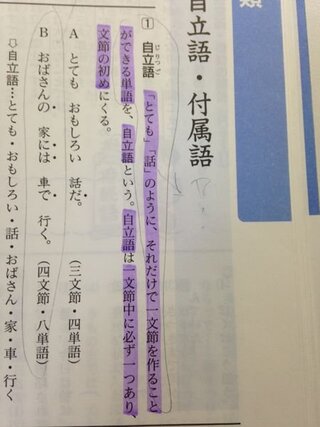 類
自立語・付属語
① 自立語
じりつご
「とても」「話」のように、それだけで一文節を作ること
ができる単語を、自立語という。自立語は一文節中に必ず一つあり、
文節の初めにくる。
A とても おもしろい 話だ。 (三文節・四単語)
B おばさんの 家には 車で 行く。 (四文節・八単語)
⇩自立語…とても・おもしろい・話・おばさん・家・車・行く